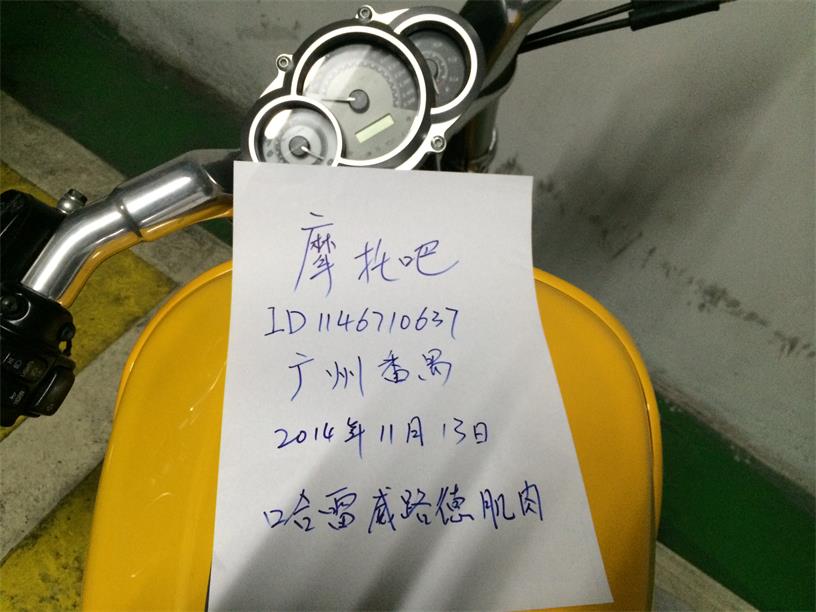 摩托吧
ID1146710637
广州番禺
2014年11月13日
哈雷威路德肌肉